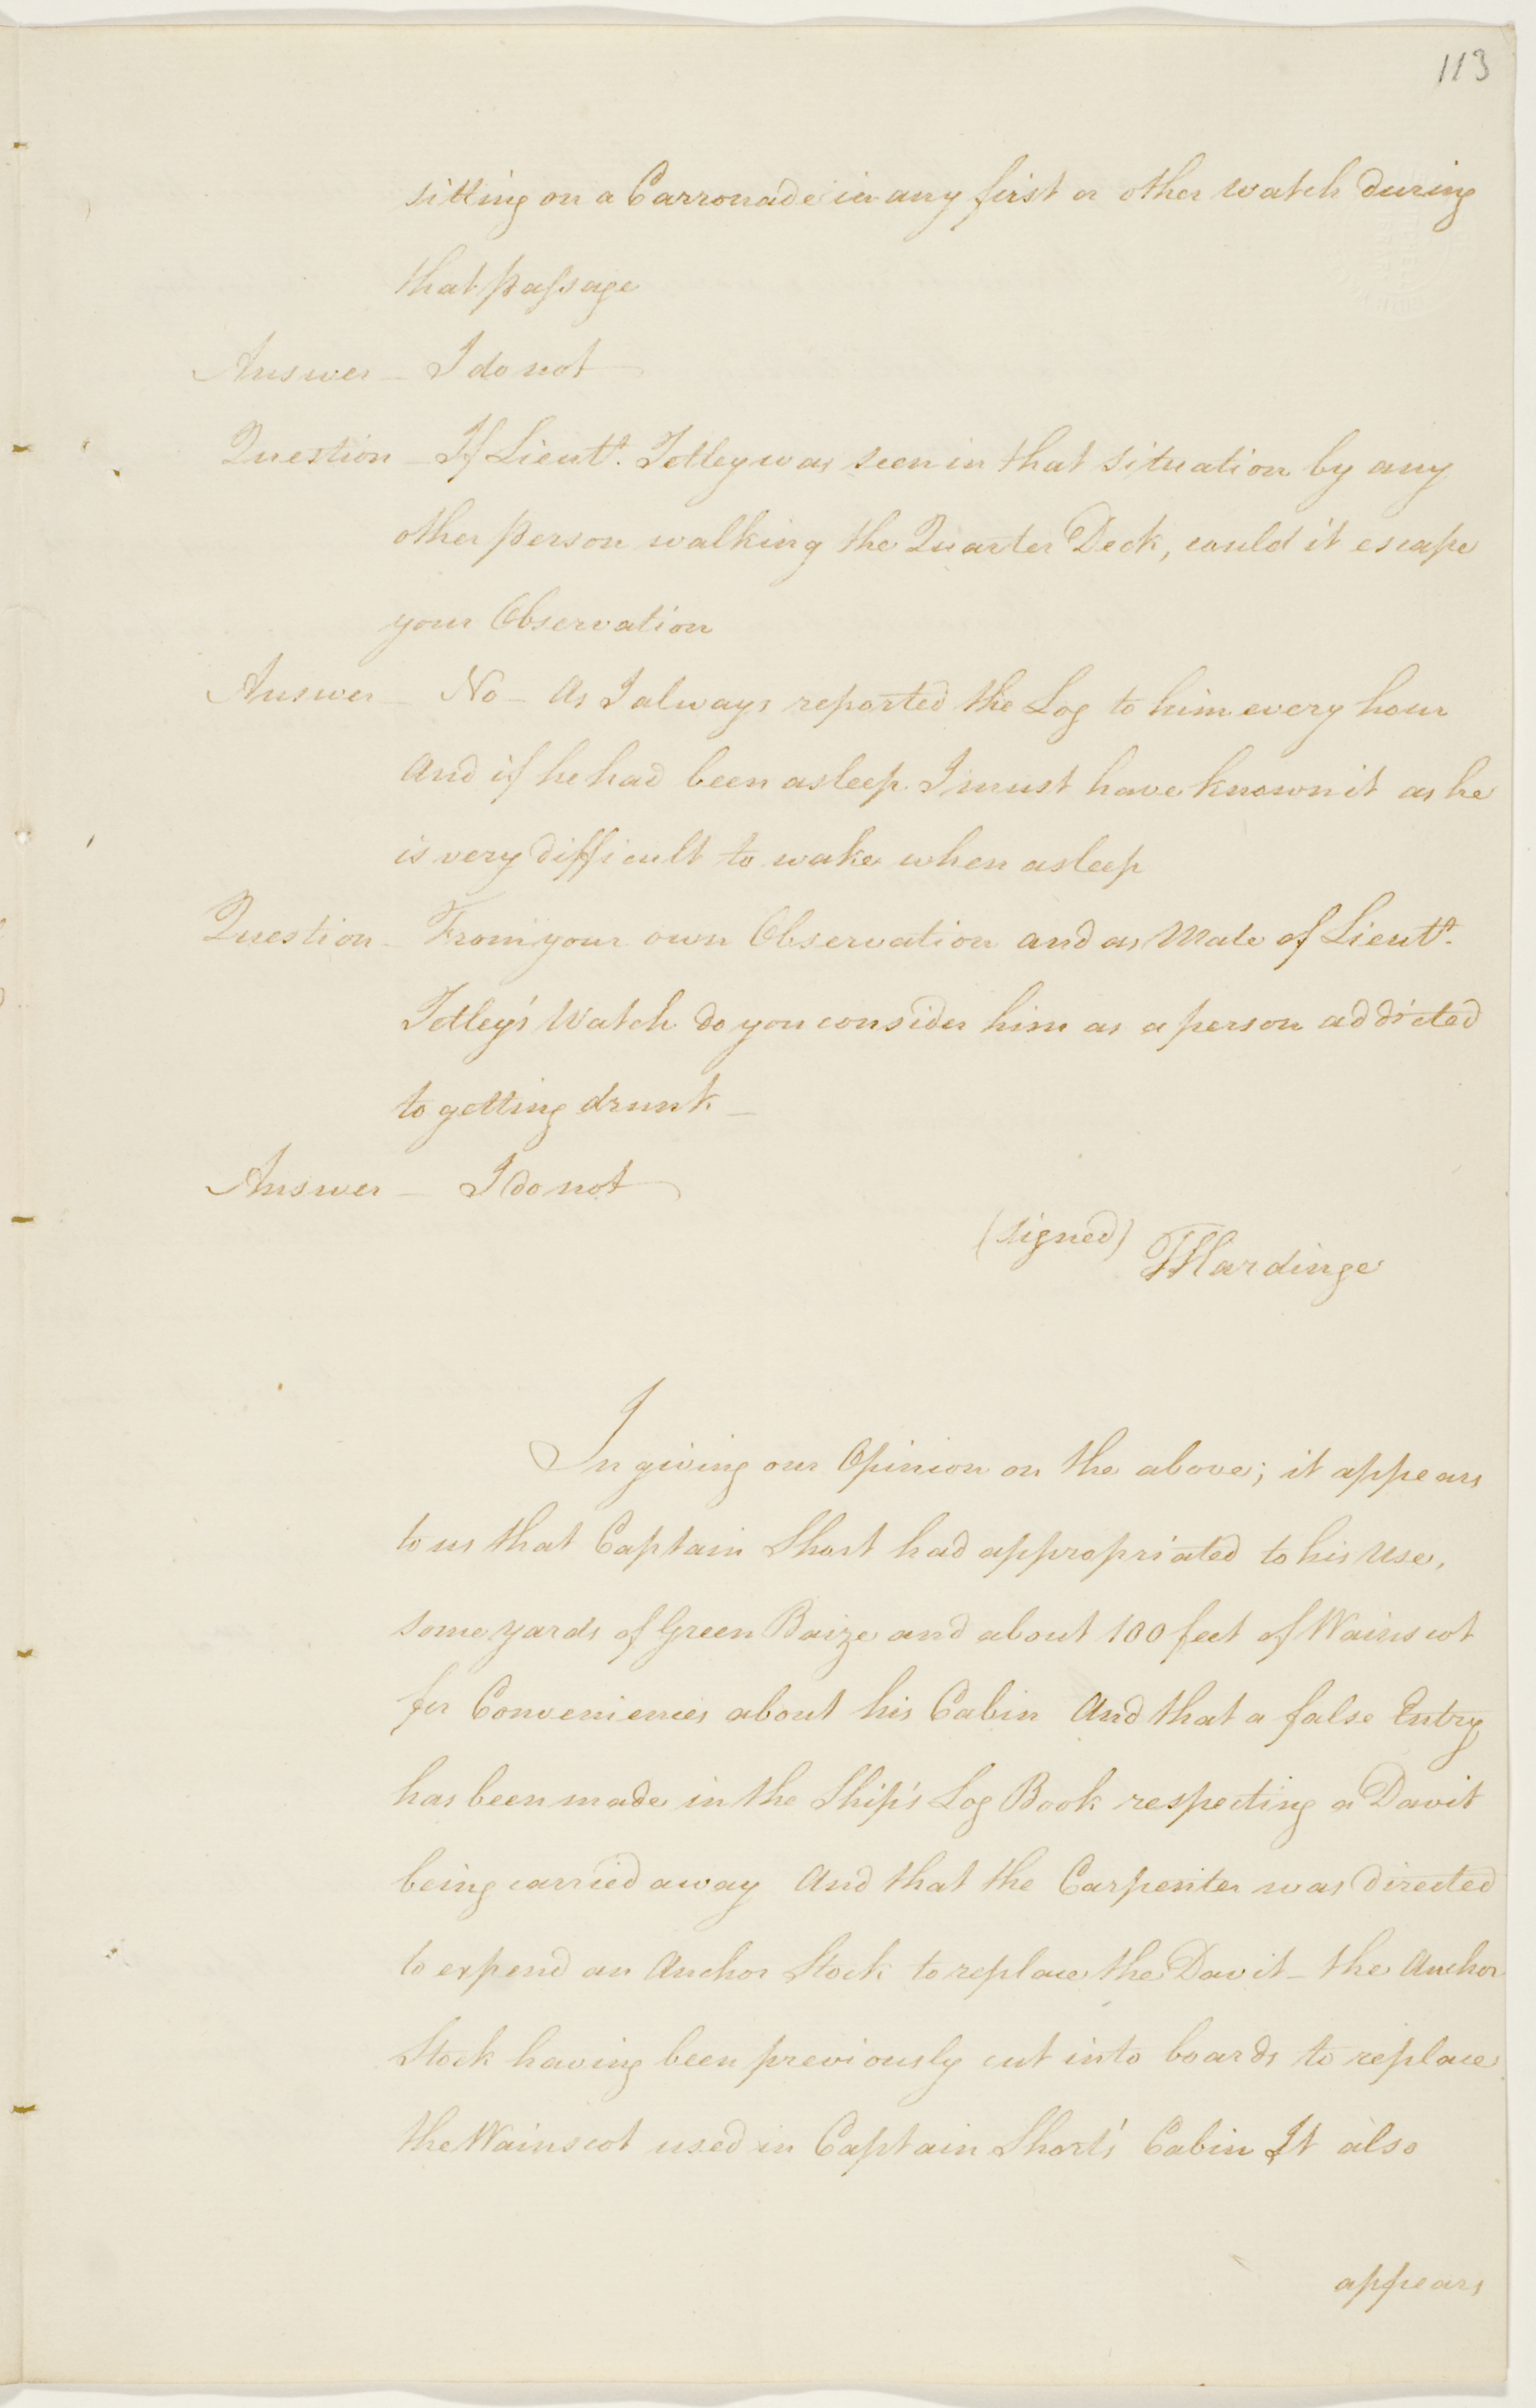 113
sitting on a Carronade in any first or other watch during
that passage
Answer _ I do not
Question _ If Lieut.t Tetley was seen in that situation by any
other person walking the Quarter Deck, could it escape
your Observation
Answer _ No _ As I always reported the Log to him every hour
And if he had been asleep I must have known it as he
is very difficult to wake when asleep
Question _ From your own Observation and as Mate of Lieut.t
Tetley's Watch do you consider him as a person addicted
to getting drunk _
Answer _ I do not
(signed) T Hardinge
In giving our Opinion on the above; it appears
to us that Captain Short had appropriated to his Use,
some yards of Green Baize and about 100 feet of Wainscot
for Conveniencies about his Cabin And that a false Entry
has been made in the Ship's Log Book respecting a Davit
being carried away And that the Carpenter was directed
to expend an Anchor Stock to replace the Davit _ the Anchor
Stock having been previously cut into boards to replace
the Wainscot used in Captain Short's Cabin It also
appears